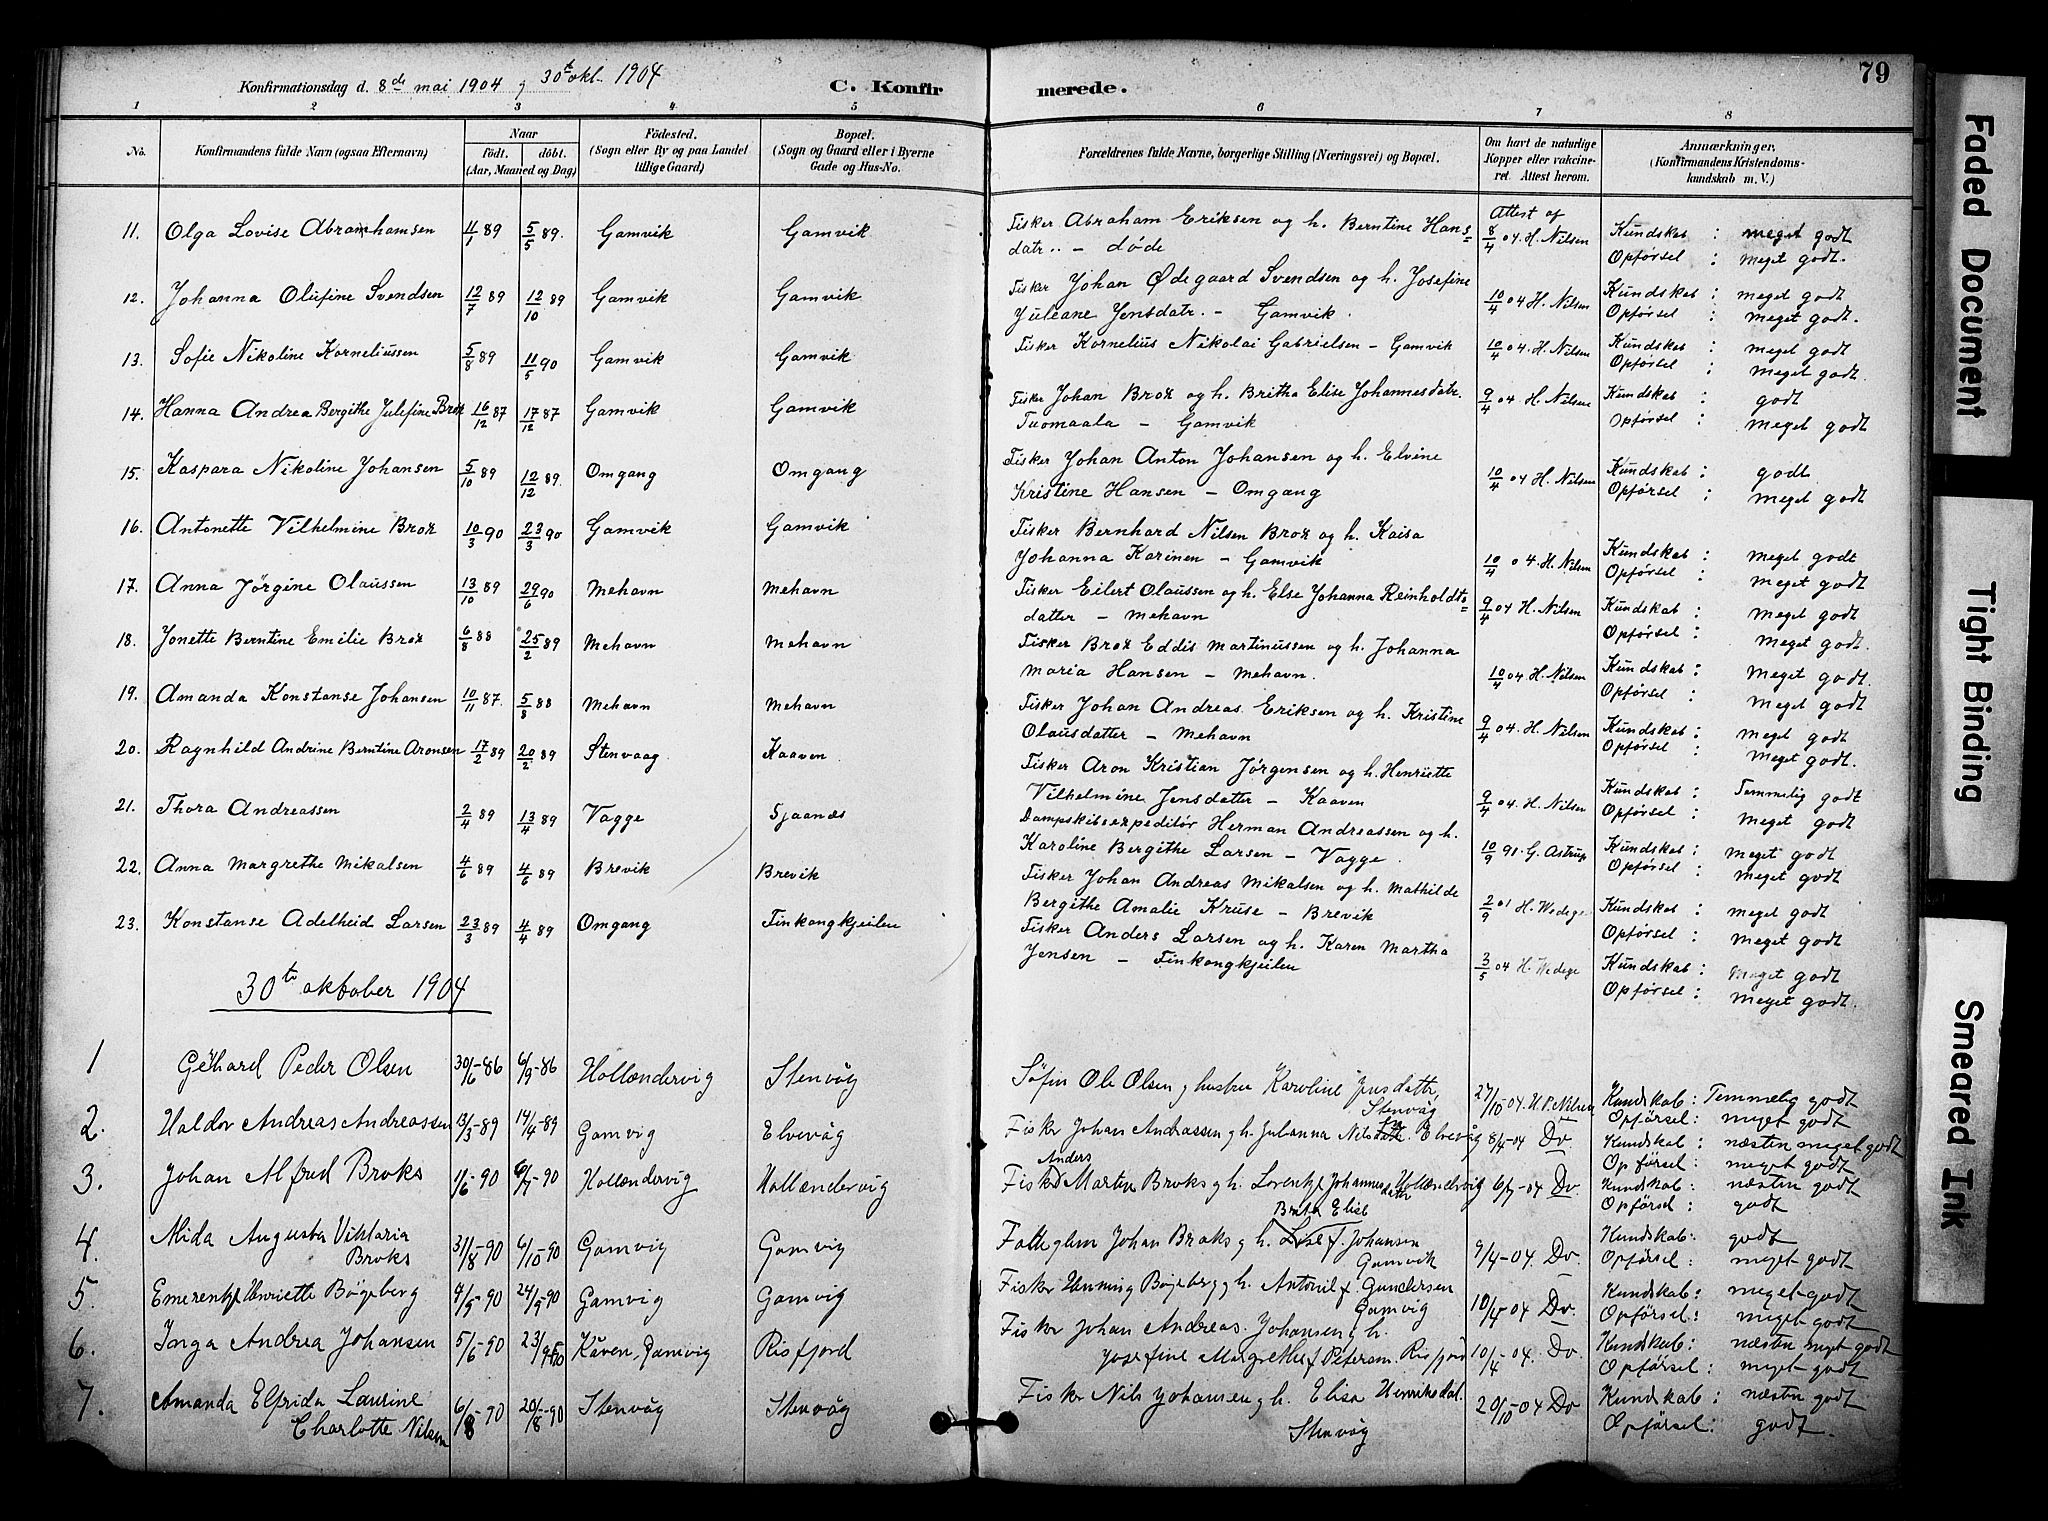 79
Konfirmationsdag d. 8de mai 1904 30te okt. 1904
C. Konfirmerede.
1 2 3 4 5 6 7 8
No. Konfirmandens fulde Navn (ogsaa Efternavn) Naar födt. döbt. (Aar, Maaned og Dag) Födested. (Sogn eller By og paa Landet tillige Gaard) Bopæl. (Sogn og Gaard eller i Byerne Gade og Hus-No. Forældrenes fulde Navne, borgerlige Stilling (Næringsvei) og Bopæl. Om havt de naturlige Kopper eller vakcineret. Attest herom. Anmærkninger. (Konfirmandens Kristendomskundskab m. V.)
11. Olga Lovise Abrahamsen 11/1 89 5/5 89. Gamvik Gamvik Fisker Abraham Eriksen og h. Berntine Hans= Attest af 8/4 04. H. Nilsen Kundskab : meget godt
datr.. - døde Opførsel : meget godt.
12. Johanna Olufine Svendsen 12/7 89 12/10 89 Gamvik Gamvik Fisker Johan Ødegaard Svendsen og h. Josefine 10/4 04 H. Nilsen Kundskab : meget godt
Juleane Jensdatr. - Gamvik. Opførsel : meget godt.
13. Sofie Nikoline Korneliussen 5/8 89 11/5 90 Gamvik Gamvik Fisker Kornelius Nikolai Gabrielsen - Gamvik 10/4 04. H. Nilsen Kundskab : meget godt
Opførsel : meget godt.
14. Hanna Andrea Bergithe Julefine Brox 16/12 87 17/12 87 Gamvik Gamvik Fisker Johan Brox og h. Britha Elise Johannesdatr. 9/4 04 H. Nilsen Kundskab : godt
Tuomaala - Gamvik Opførsel : meget godt
15. Kaspara Nikoline Johansen 5/10 89 12/12 89. Omgang Omgang Fisker Johan Anton Johansen og h. Elvine 10/4 04 H. Nilsen Kundskab : godt
Kristine Hansen - Omgang Opførsel : meget godt
16. Antonette Vilhelmine Brox 10/3 90 23/3 90 Gamvik Gamvik Fisker Bernhard Nilsen Brox og h. Kaisa
Johanna Karinen - Gamvik 10/4 04. H. Nilsen Kundskab : meget godt
Opførsel : meget godt
17. Anna Jørgine Olaussen 13/10 89 29/6 90 Mehavn Mehavn Fisker Eilert Olaussen og h. Else Johanna Reinholdts= 9/4 04 H. Nilsen Kundskab : meget godt
datter - Mehavn Opførsel : meget godt.
18. Jonette Berntine Emilie Brox 6/8 88 25/2 89 Mehavn Mehavn Fisker Brox Eddis Martinussen og h. Johanna
Maria Hansen - Mehavn. 10/4 04 H. Nilsen Kundskab : Meget godt.
Opførsel : meget godt
19. Amanda Konstanse Johansen 10/11 87. 5/8 88 Mehavn Mehavn Fisker Johan Andreas Eriksen og h. Kristine
Olausdatter - Mehavn 9/4 04. H. Nilsen Kundskab : meget godt
Opførsel : meget godt.
20. Ragnhild Andrine Berntine Aronsen 17/2 89 20/2 89 Stenvaag Kaaven Fisker Aron Kristian Jørgensen og h. Henriette
Vilhelmine Jensdatter - Kaaven 9/4 04. H. Nilsen Kundskab : Temmelig godt
Opførsel : meget godt
21. Thora Andreassen 2/4 89 13/4 89 Vagge Sjaanæs Dampskibsexpeditör Herman Andreassen og h.
Karoline Bergithe Larsen - Vagge. 10/9 91. G. Astrup Kundskab : meget godt
Opførsel : meget godt
22. Anna Margrethe Mikalsen 4/6 89 4/6 89 Brevik Brevik Fisker Johan Andreas Mikalsen og h. Mathilde
Bergithe Amalie Kruse - Brevik 2/9 01 H. Wedege Kundskab : meget godt
Opførsel : meget godt
23. Konstanse Adelheid Larsen 23/3 89 4/4 89 Omgang Finkongkjeilen Fisker Anders Larsen og h. Karen Martha
Jensen - Finkongkjeilen 3/5 04 H. Wedege Kundskab : Meget godt
Opførsel : meget godt.
30te oktober 1904
1 Gerhard Peder Olsen 30/6-86 6/9-86 Hollændervig Stenvåg Ole Olsen hustru Karoline Jensdatter, 27/10-04. H.P. Nilsen Kundskab : Temmelig godt
Stenvåg Opførsel : meget godt
2. Haldor Andreas Andreassen 13/3-89 14/4-89 Gamvig Elvevåg Fisker Johan Andreassen g h. Julianna Nilsdatter. Elvevåg 8/4-04 Do. Kundskab : næsten meget godt
Opførsel : meget godt
3. Johan Alfred Broks 1/6-90 6/7-90 Hollændervig Hollændervig Fisker Anders Martin Broks g h. Johannesdatter Hollændervig 6/7-04 Do. Kundskab : næsten godt
Opførsel : godt
4. Alida Augusta Viktoria Broks 31/8-90 6/10-90 Gamvig Gamvig Johan Broks g h. Brita Elise f. Johansen 9/4-04. Do Kundskab : godt
Gamvik Opførsel : meget godt
5. Henriette Bøgeberg 9/9-90 24/9-90 Gamvig Gamvig Fisker Henning Bøgeberg g h. f. Gundersen 10/4-04 Do Kundskab : meget godt
Gamvig Opførsel : meget godt
6. Inga Andrea Johansen 5/6-90 Kåven, Gamvig Risfjord Fisker Johan Andreas Johansen g h. Kundskab : næsten meget godt
Josefine Margrethe f. Petersen Risfjord 10/4-04. Do. Opførsel : meget godt
7. Amanda Elfrida Laurine 6/8-90 20/8-90 Stenvåg Stenvåg Fisker Nils Johansen g h. Elisa Henriksdat. 20/10-04 Do Kundskab : næsten godt
Charlotte Nilsen Stenvåg Opførsel : godt.
Faded Document
Tight Binding
Smeared Ink